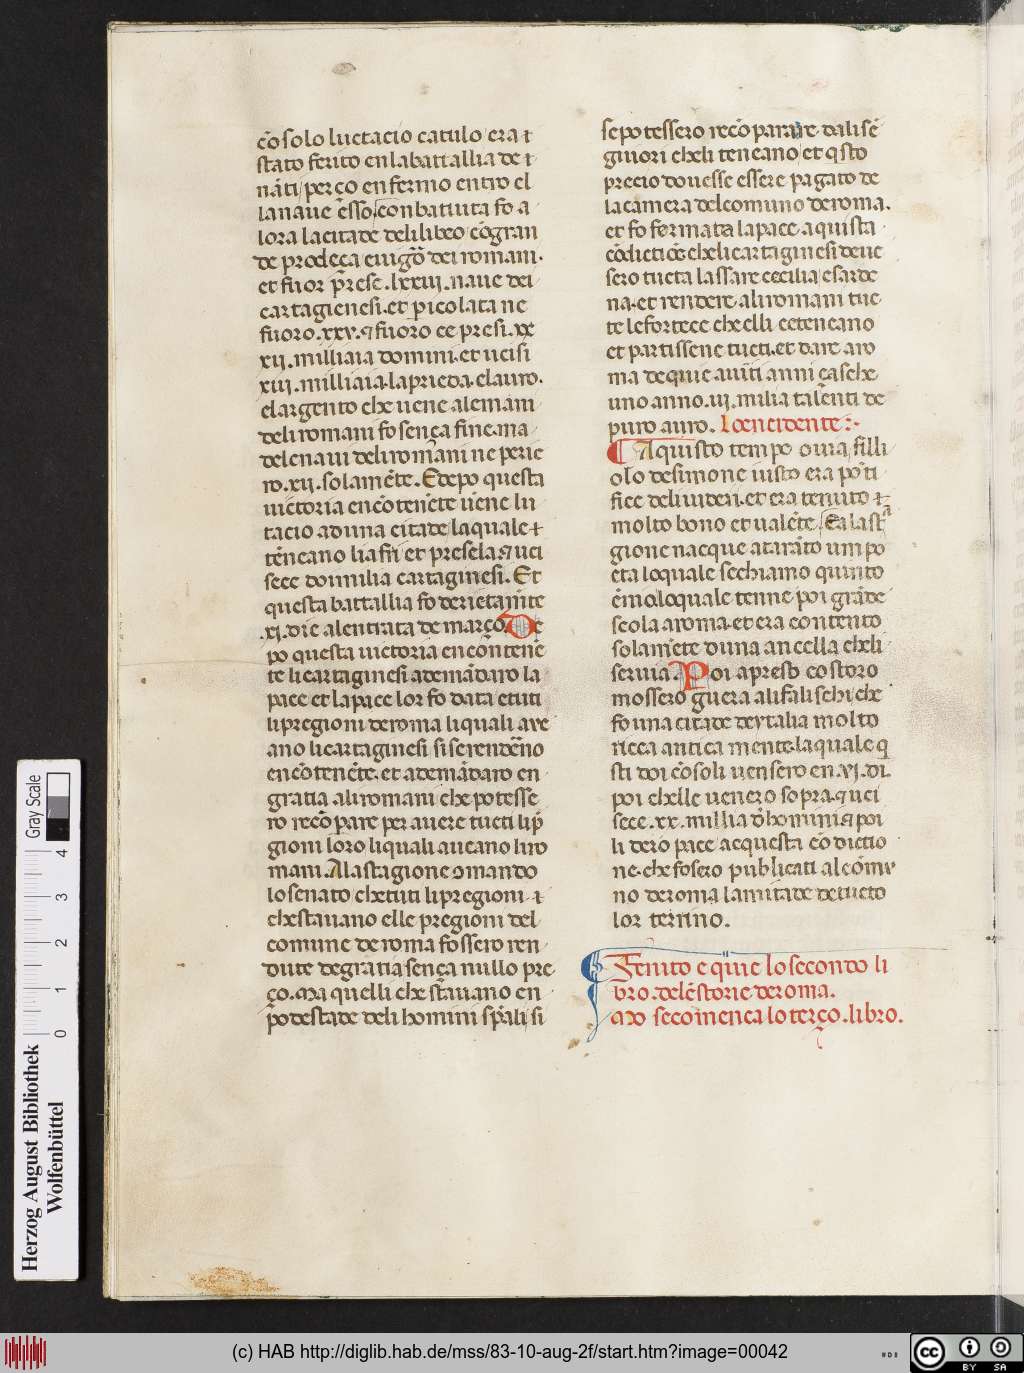 cõsolo luctacio catulo era ⁊
stato ferito en la battallia de ⁊
nãti perço en fermo entro el
la naue esso. conbatiuta fo a
lora la citade de lilibeo cõ gran
de prodeça e uigõ dei romani.
et fuor prese .lxxiii. naue dei
cartagienesi. et picolata ne
fuoro .xxv. ⁊ fuoro ce presi .xx
xii. milliaia domini. et ucisi
xiii. milliaia. la prieda. el auro.
el argento che uene a le mani
de li romani fo sença fine. ma
de le naui de li romani ne perie
ro .xii. sola mẽte. E depo questa
uictoria en cõtenẽte uẽne lu
tacio ad una citade la quale ⁊
tẽneano li afri et presela. ⁊ uci
sece doi milia cartaginesi. Et
questa battallia fo derietamẽte
.xi. die a lentrata de março. De
po questa uictoria en contenẽ
te li cartaginesi ademãdaro la
pace et la pace lor fo data et tuti
li pregioni de roma li quali aue
ano li cartaginesi si se rendeno
en cõtenẽte. et ademãdaro en
gratia a li romani che potesse
ro recõpare per auere tucti li p̃
gioni loro li quali aueano li ro
mani. A la stagione omando
lo senato che tuti li pregioni ⁊
che stauano elle pregioni del
comune de roma fossero ren
dute de gratia sença nullo pre
ço. Ma quelli che stauano en
podestade de li homini sp̃ali si
se potessero recõparare da li sẽ
gniori che li teneano et q̃sto
precio douesse essere pagato de
la camera del comuno de roma.
et fo fermata la pace a quista
cõdictiõe che li cartaginesi deue
sero tucta lassare cecilia e sarde
na. et rendere a li romani tuc
te le forteçe che elli ce teneano
et partissene tucti. et dare a ro
ma de quie a uinti anni çasche
uno anno .iii. milia talenti de
puro auro. Lo encidente:.
A quisto tempo oura filli
olo de simone iusto era põti
fice de li iudei. et era tenuto ⁊
molto bono et ualẽte. E a la sta
gione nacque a tarãto um po
eta lo quale se chiamo quinto
ẽnio. lo quale tenne poi grãde
scola a roma. et era contento
solamẽte duna ancella che li
seruia. Poi apresso costoro
mossero guera a li falischi che
fo una citade de ytalia molto
ricca antica mente. la quale q̃
sti doi cõsoli uensero en .vi. di.
poi chelle uenero sopra. ⁊ uci
sece .xx. millia dhomini ⁊ poi
li dero pace a cquesta cõdictio
ne. che fosero publicati al cõmu
no de roma la mitade de tucto
lor terrino.
Fenito e quie lo secondo li
bro. de le storie de roma.
Mo se comença lo terço. libro.
Gray Scale
0 1 2 3 4
Herzog August Bibliothek
Wolfenbüttel
(c) HAB http://diglib.hab.de/mss/83-10-aug-2f/start.htm?image=00042
cc BY SA